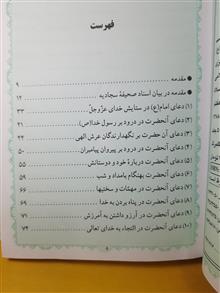 فهرست
مقدمه ۹
مقدمه در بیان اسناد صحیفهٔ سجادیه ۱۲
(۱) دعای امام(ع) در ستایش خدای عزّوجلّ ۳۳
(۲) دعای آنحضرت در درود بر رسول خدا(ص) ۴۱
(۳) دعای آن حضرت بر نگهدارندگان عرش الهی
(۴) دعای آنحضرت در درود بر پیروان پیامبران ۵۰
(۵) دعای آنحضرت دربارهٔ خود و دوستانش ۵۵
(۶) دعای آنحضرت بهنگام بامداد و شب ۵۹
(۷) دعای آنحضرت در مهمّات و سختیها ۶۶
(۸) دعای آنحضرت در پناه بردن به خدا ۶۹
(۹) دعای آنحضرت در آرزو داشتن به آمرزش ۷۱
(۱۰) دعای آنحضرت در التجاء به خدای تعالی ۷۴